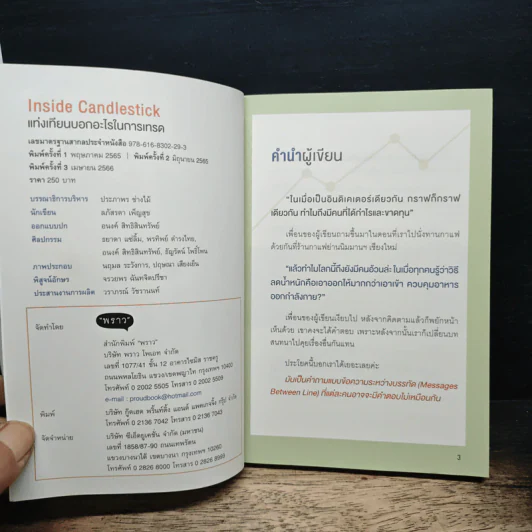 Inside Candlestick
แท่งเทียนบอกอะไรในการเทรด
เลขมาตรฐานสากลประจำหนังสือ 978-616-8302-29-3
พิมพ์ครั้งที่ 1 พฤษภาคม 2565 | พิมพ์ครั้งที่ 2 มิถุนายน 2565
พิมพ์ครั้งที่ 3 เมษายน 2566
ราคา 250 บาท
บรรณาธิการบริหาร ประภาพร ช่างไม้
นักเขียน ลภัสรดา เพ็ญสุข
ออกแบบปก อนงค์ สิทธิสินทรัพย์
ศิลปกรรม รยาดา แซ่ลิ้ม, พรทิพย์ ดำรงไทย,
อนงค์ สิทธิสินทรัพย์, ธัญรัตน์ โพธิ์โหน
ภาพประกอบ นฤมล ระวังการ, ปฤษณา เสียงเย็น
พิสูจน์อักษร จรวยพร ฉันทจิตปรีชา
ประสานงานการผลิต วราภรณ์ วัชรานนท์
จัดทำโดย "พราว"
สำนักพิมพ์ "พราว"
บริษัท พราว โพเอท จำกัด
เลขที่ 1077/41 ชั้น 12 อาคารไอมิส ราชครู
ถนนพหลโยธิน แขวง/เขตพญาไท กรุงเทพฯ 10400
โทรศัพท์ 0 2002 5505 โทรสาร 0 2002 5505
e-mail : proudbook@hotmail.com
พิมพ์ บริษัท กู๊ดเฮด พริ้นท์ติ้ง แอนด์ แพคเกจจิ้ง กรุ๊ป จำกัด
โทรศัพท์ 0 2136 7042 โทรสาร 0 2136 7043
จัดจำหน่าย บริษัท ซีเอ็ดยูเคชั่น จำกัด (มหาชน)
เลขที่ 1858/87-90 ถนนเทพรัตน
แขวงบางนาใต้ เขตบางนา กรุงเทพฯ 10260
โทรศัพท์ 0 2826 8000 โทรสาร 0 2826 8999
คำนำผู้เขียน
"ในเมื่อเป็นอินดิเคเตอร์เดียวกัน กราฟก็กราฟ
เดียวกัน ทำไมถึงมีคนที่ได้กำไรและขาดทุน"
เพื่อนของผู้เขียนถามขึ้นมาในตอนที่เราไปนั่งทานกาแฟ
ด้วยกันที่ร้านกาแฟย่านนิมมานฯ เชียงใหม่
"แล้วทำไมโลกนี้ถึงยังมีคนอ้วนล่ะ ในเมื่อทุกคนรู้ว่าวิธี
ลดน้ำหนักคือเอาออกให้มากกว่าเอาเข้า ควบคุมอาหาร
ออกกำลังกาย?"
เพื่อนของผู้เขียนเงียบไป หลังจากคิดตามแล้วก็พยักหน้า
เห็นด้วย เขาคงจะได้คำตอบ เพราะหลังจากนั้นเราก็เปลี่ยนบท
สนทนาไปคุยเรื่องอื่นกันแทน
ประโยคนี้บอกเราได้เยอะเลยค่ะ
มันเป็นคำถามแบบข้อความระหว่างบรรทัด (Messages
Between Line) ที่แต่ละคนอาจจะมีคำตอบไม่เหมือนกัน
3